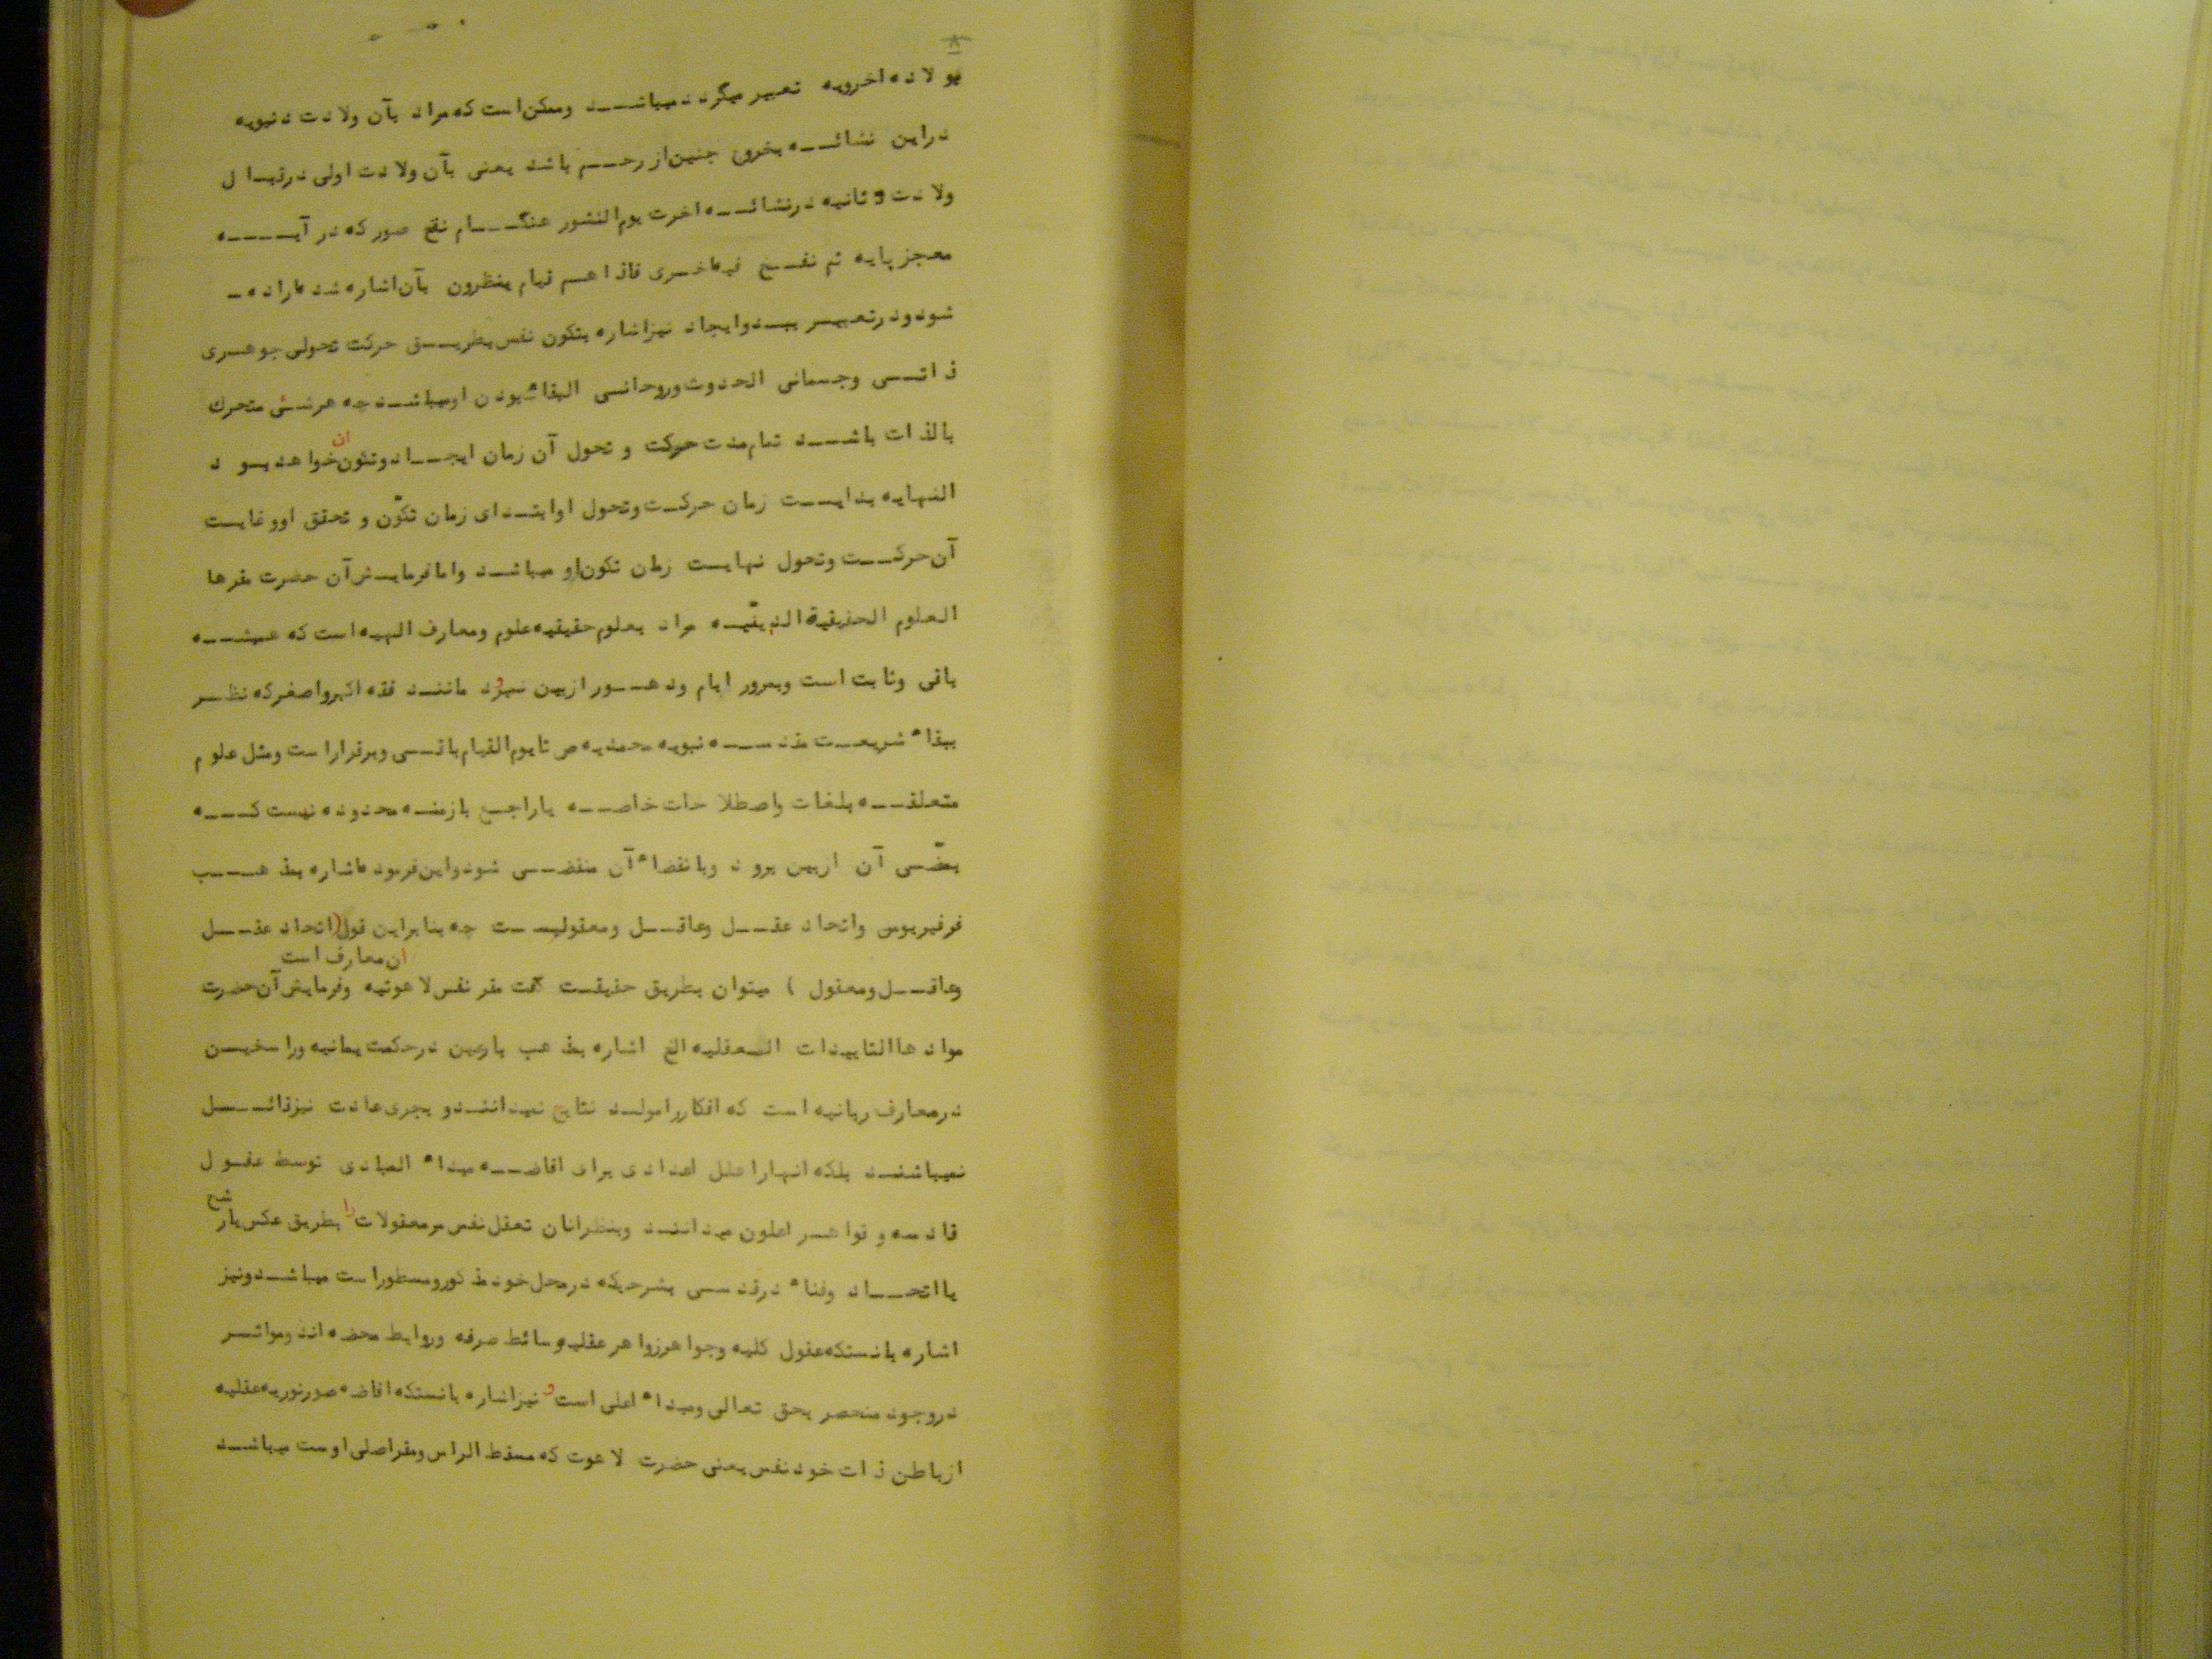 ۸
بولاده اخرویه تعبیر میگردد میباشد وممکن است که مراد بآن ولادت دنیویه
دراین نشائه بخروج جنین از رحم باشد یعنی بآن ولادت اولی درقبال
ولادت ثانیه درنشائه اخرت یوم النشور هنگام نفخ صور که در آیه
معجز پایه ثم نفخ فیه اخری فاذا هم قیام ینظرون بآن اشاره شده اراده
شود ودرتعبیر ببدوایجاد نیزاشاره بتکون نفس بطریق حرکت تحولی جوهری
ذاتی وجسمانی الحدوث وروحانی البقاء بودن اومیباشد چه هرشئی متحرك
بالذات باشد تمام مدت حرکت و تحول آن زمان ایجاد وتکون ان خواهد بود
النهایه بدایت زمان حرکت وتحول اوابتدای زمان تکوّن و تحقق اووغایت
آن حرکت وتحول نهایت زمان تکون او میباشد واما فرمایش آن حضرت مقرها
العلوم الحقیقیة الدینیّه مراد بعلوم حقیقیه علوم ومعارف الهیه است که همیشه
باقی وثابت است وبمرور ایام ودهور ازبین نمیرود مانند فقه اکبرواصغرکه نظر
ببقاء شریعت مقدسه نبویه محمدیه ص تا یوم القیام باقی وبرقراراست ومثل علوم
متعلقه بلغات واصطلاحات خاصه یاراجع بازمنه محدوده نیست که
بعضّی آن ازبین برود وبانقضاء آن منقضی شود واین فرموده اشاره بمذهب
فرفیریوس واتحاد عقل وعاقل ومعقولیست چه بنابراین قول (اتحاد عقل
وعاقل ومعقول ) میتوان بطریق حقیقت گفت مقر نفس لاهوتیه ان معارف است وفرمایش آن حضرت
موادها التاییدات العقلیه الخ اشاره بمذهب بارعین درحکمت یمانیه وراسخین
درمعارف ربانیه است که افکاررامولد نتایج نمیدانند و بجری عادت نیزقائل
نمیباشند بلکه انهارا علل اعدادی برای افاضه مبداء المبادی توسط عقول
قادسه و نواهر اعلون میدانند وبنظرانان تعقل نفس مرمعقولات را بطریق عکس یارشح
یا اتحاد وفناء درقدسی بشرحیکه درمحل خود مذکورومسطوراست میباشد ونیز
اشاره بانستکه عقول کلیه وجواهرزواهر عقلیه وسائط صرفه وروابط محضه اند وموثر
دروجود منحصر بحق تعالی ومبداء اعلی است و نیزاشاره بانستکه افاضه صورنوریه عقلیه
ازباطن ذات خود نفس یعنی حضرت لاهوت که مسقط الراس ومقراصلی اوست میباشد